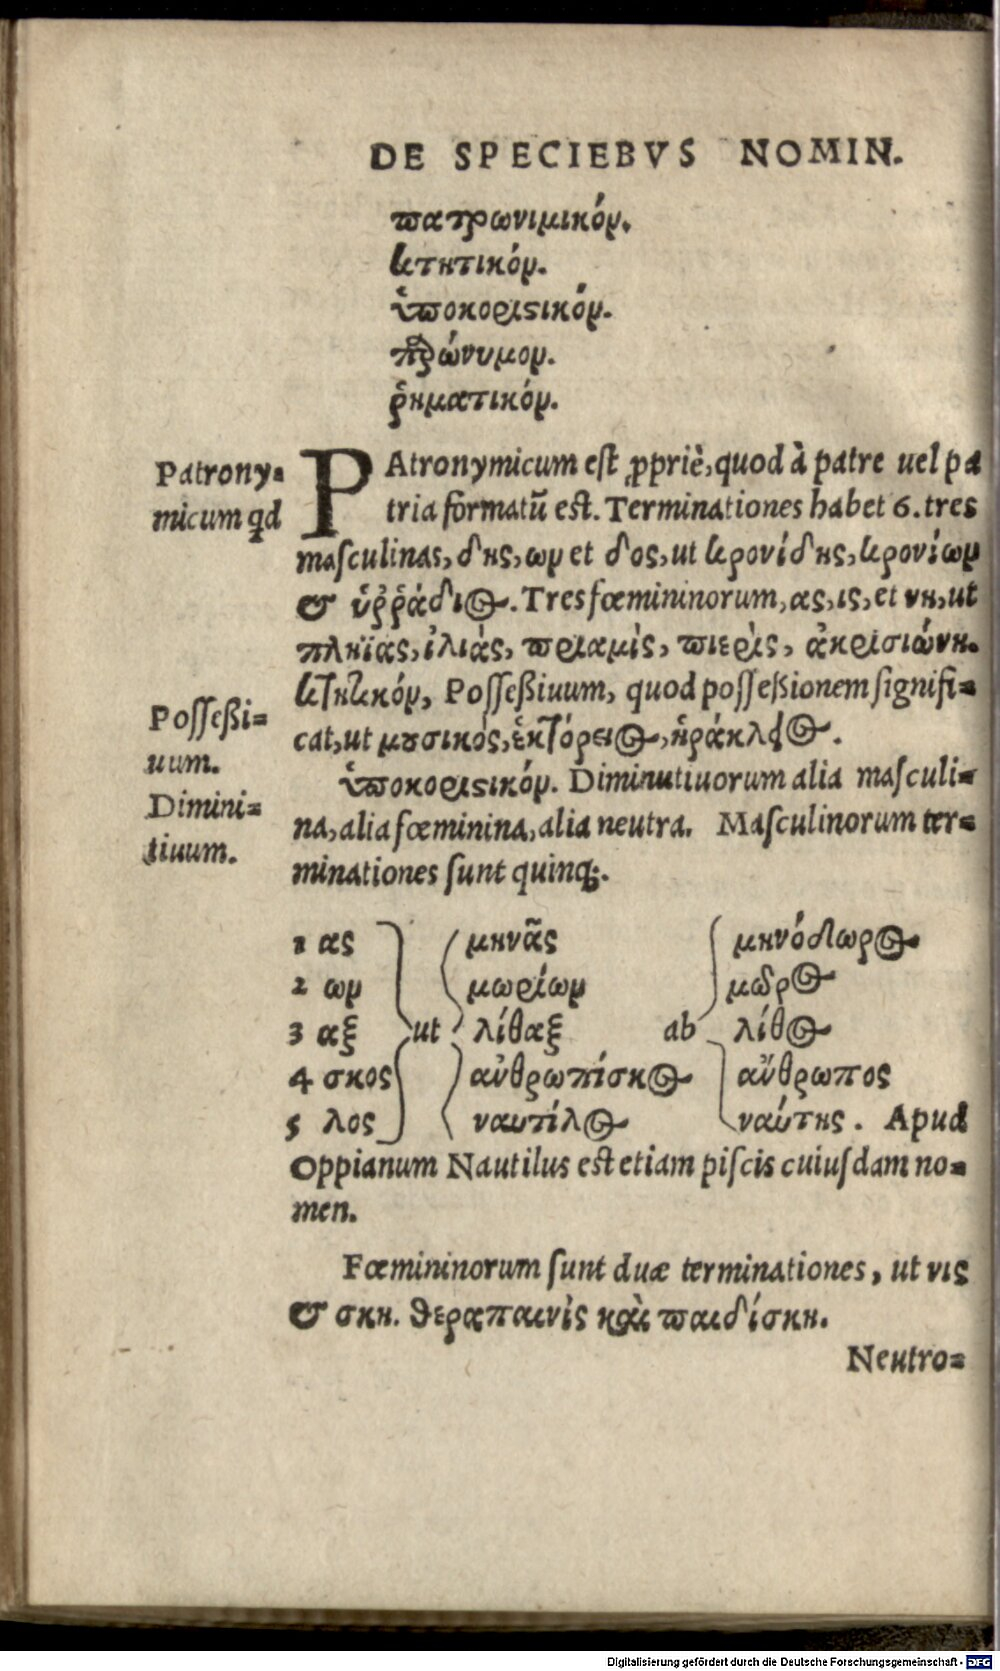 DE SPECIEBVS NOMIN.
πατρωνιμικόν.
κτητικόν.
ὑποκοριστικόν.
παρώνυμον.
ῥηματικόν.
Patrony=
micum qd
PAtronymicum est ꝓpriè, quod à patre uel pa
tria formatū est. Terminationes habet 6. tres
masculinas, δης, ων et δος, ut κρονίδης, κρονίων
& ὑῤῥάδιος. Tres fœmininorum, ας, ις, et νη, ut
πληϊὰς, ἰλιὰς, πριαμὶς, πιερὶς, ἀκρισιώνη.
Possessi=
uum.
κτητικόν, Possessiuum, quod possessionem signifi=
cat, ut μουσικός, ἑκτόρειος, ἡράκλειος.
Dimini=
tiuum.
ὑποκοριστικόν. Diminutiuorum alia masculi=
na, alia fœminina, alia neutra. Masculinorum ter=
minationes sunt quinq;.
1 ας μηνᾶς μηνόδωρος
2 ων μωρίων μῶρος
3 αξ ut λίθαξ ab λίθος
4 σκος αὐθρωπίσκος αὔθρωπος
5 λος ναυτίλος ναύτης. Apud
Oppianum Nautilus est etiam piscis cuiusdam no=
men.
Fœmininorum sunt duæ terminationes, ut νις
& σκη. θεραπαινὶς καὶ παιδίσκη.
Neutro=
Digitalisierung gefördert durch die Deutsche Forschungsgemeinschaft - DFG